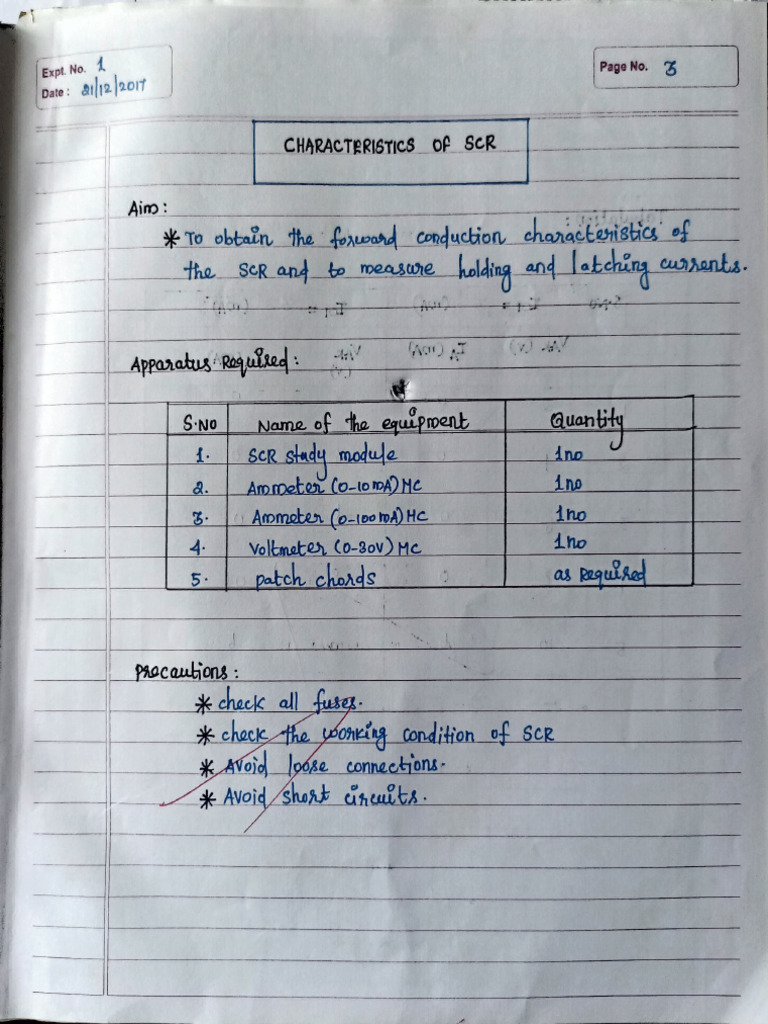 Expt. No. 1
Date : 21/12/2017
Page No. 3
CHARACTERISTICS OF SCR
Aim :
* To obtain the forward conduction characteristics of
the SCR and to measure holding and latching currents.
Apparatus Required :
S.NO Name of the equipment Quantity
1. SCR study module 1no
2. Ammeter (0-10mA) MC 1no
3. Ammeter (0-100mA) MC 1no
4. Voltmeter (0-30V) MC 1no
5. patch chords as required
Precautions :
* check all fuses.
* check the working condition of SCR
* Avoid loose connections.
* Avoid short circuits.